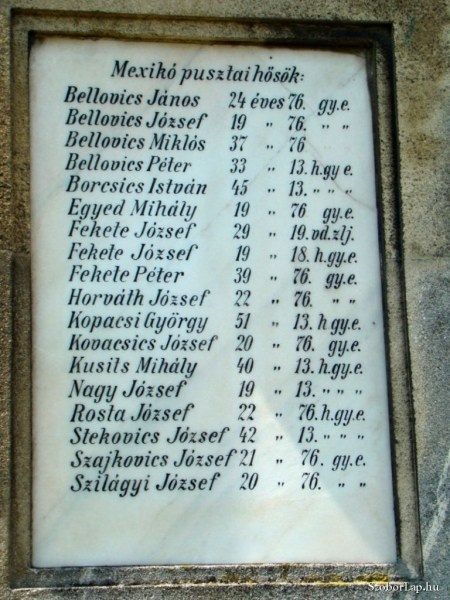 Mexikó pusztai hősök:
Bellovics János 24 éves 76. gy.e.
Bellovics József 19 " 76. " "
Bellovics Miklós 37 " 76 "
Bellovics Péter 33 " 13. h.gy e.
Borcsics István 45 " 13. " " "
Egyed Mihály 19 " 76 gy.e.
Fekete József 29 " 19. vd.zlj.
Fekete József 19 " 18. h.gy.e.
Fekete Péter 39 " 76. gy.e.
Horváth József 22 " 76. " "
Kopacsi György 51 " 13. h.gy.e.
Kovacsics József 20 " 76. gy.e.
Kusits Mihály 40 " 13. h.gy.e.
Nagy József 19 " 13. " " "
Rosta József 22 " 76. h.gy.e.
Stekovics József 42 " 13. " " "
Szajkovics József 21 " 76. gy.e.
Szilágyi József 20 " 76. " "
SzoborLap.hu